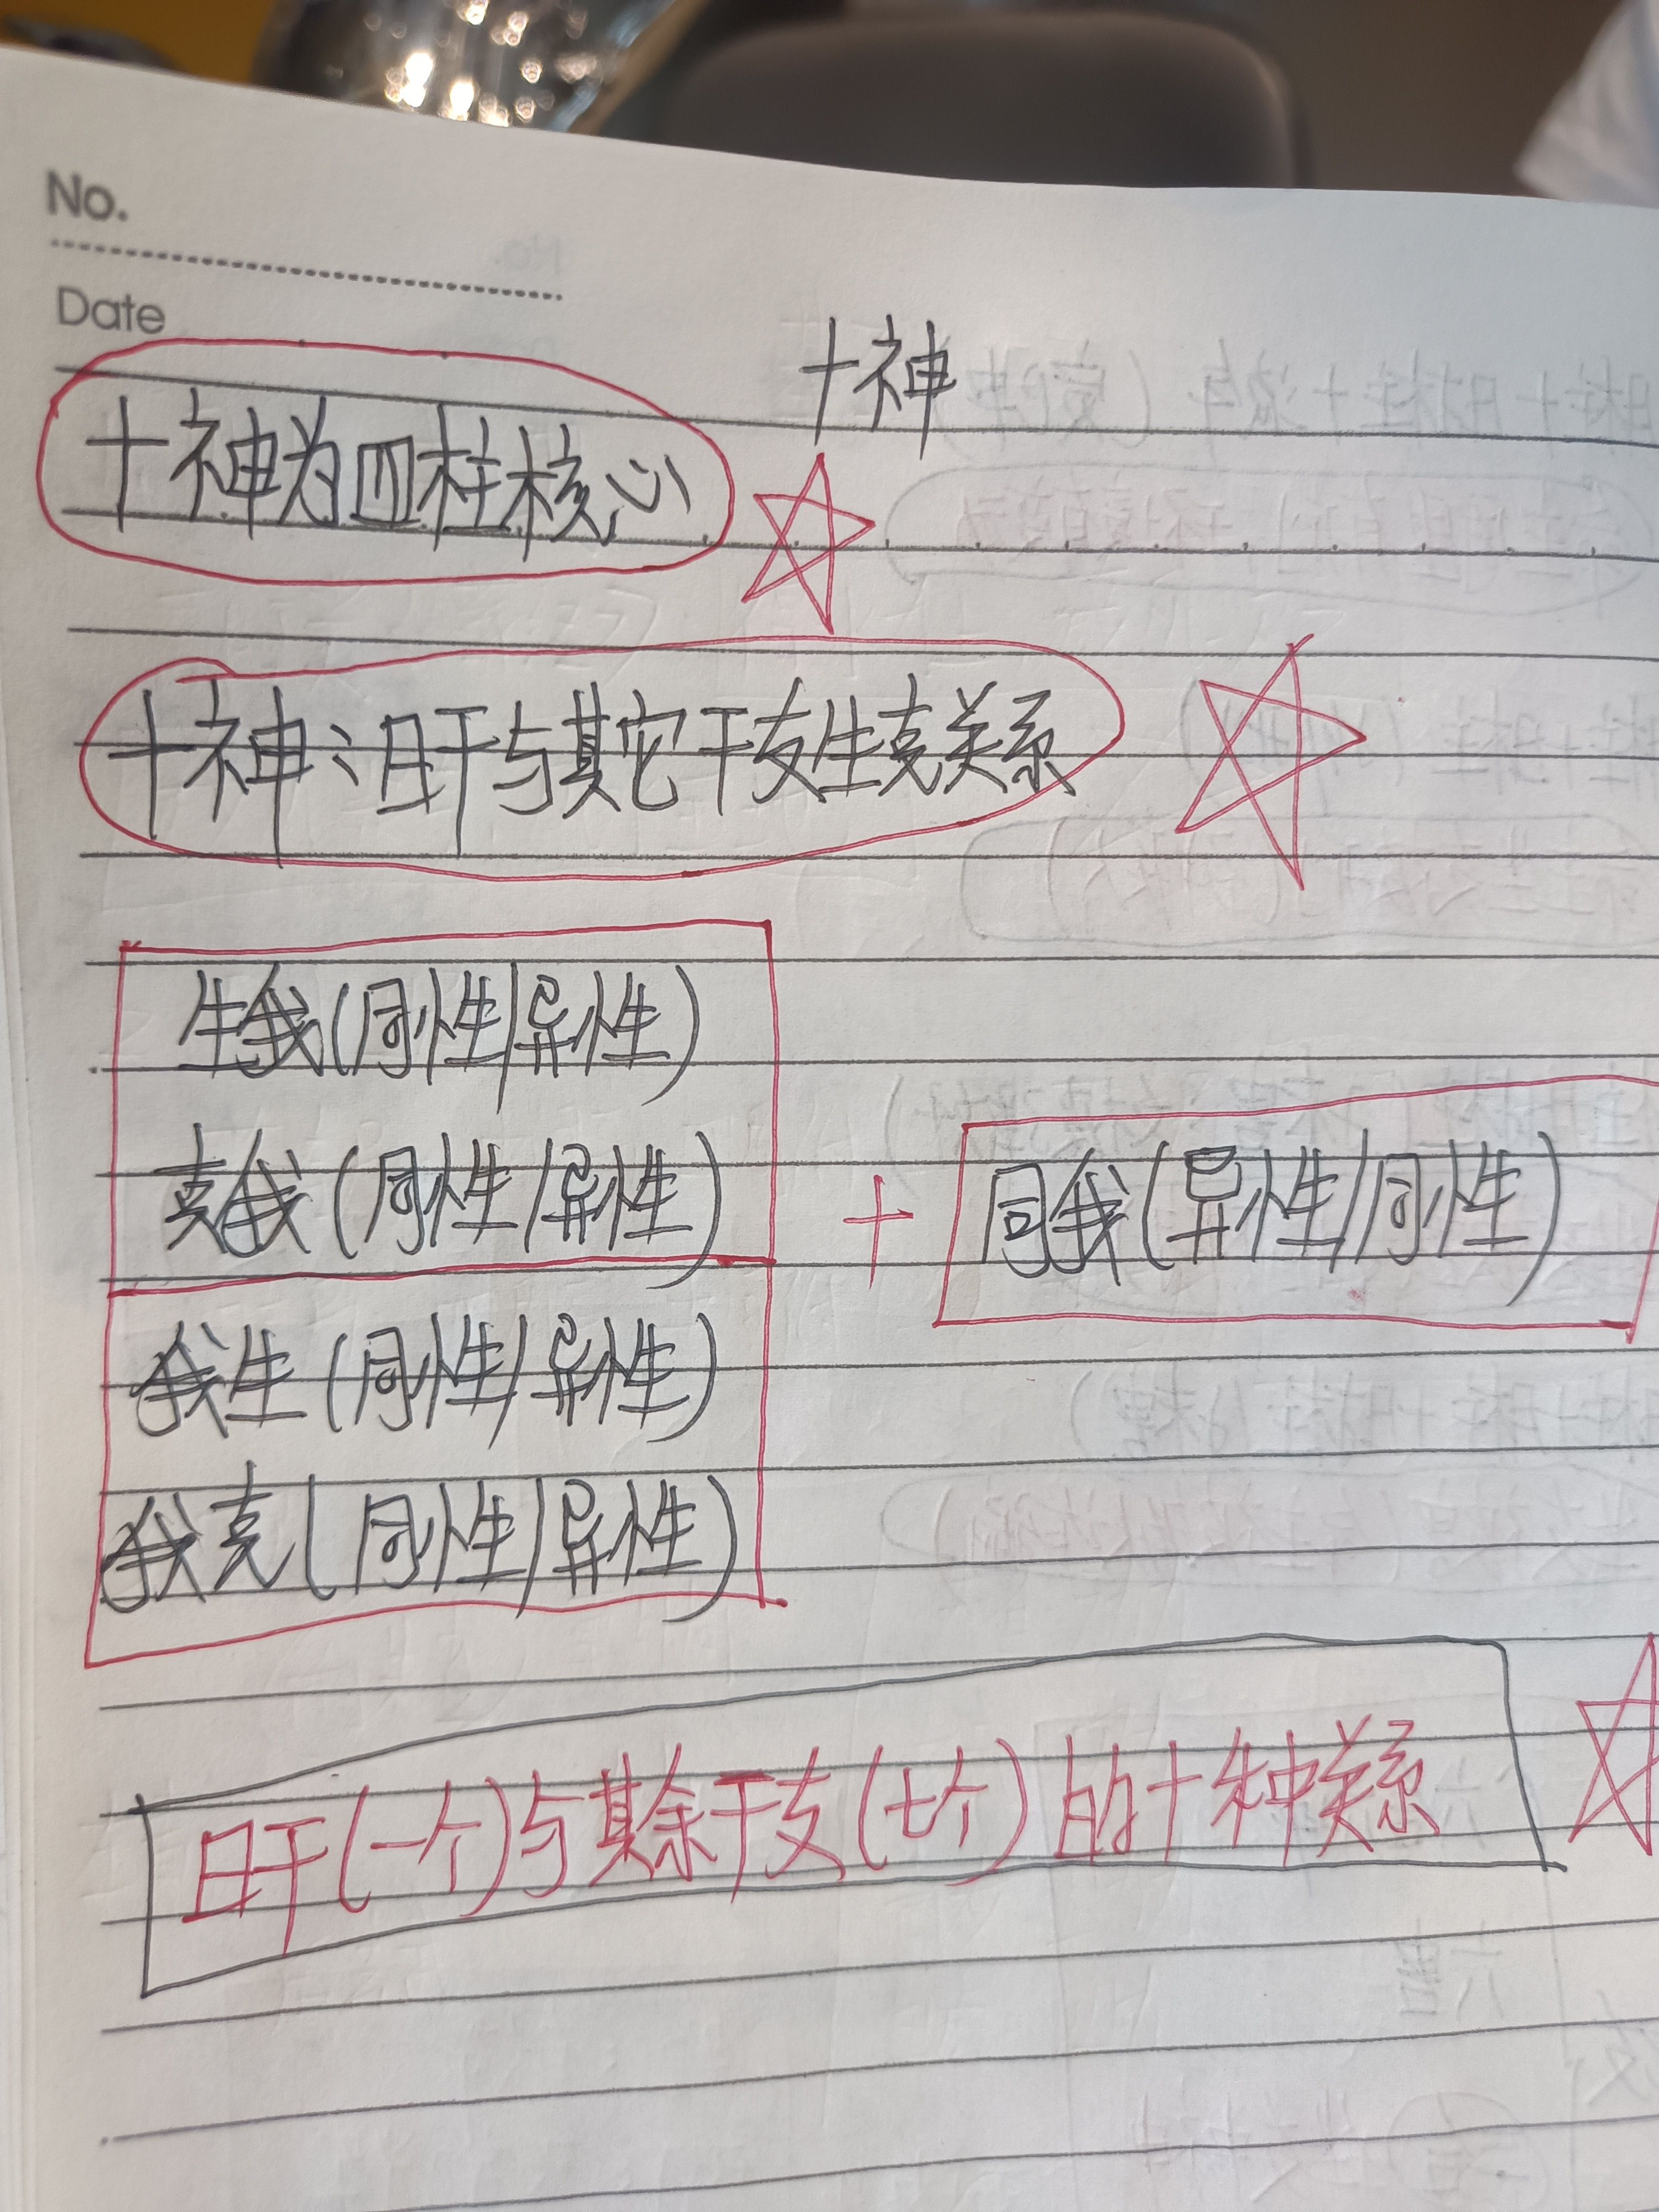 No.
Date
十神
十神为四柱核心
十神：日干与其它干支生克关系
生我(同性/异性)
克我(同性/异性)
+ 同我(异性/同性)
我生(同性/异性)
我克(同性/异性)
日干(一个)与其余干支(七个)的十种关系